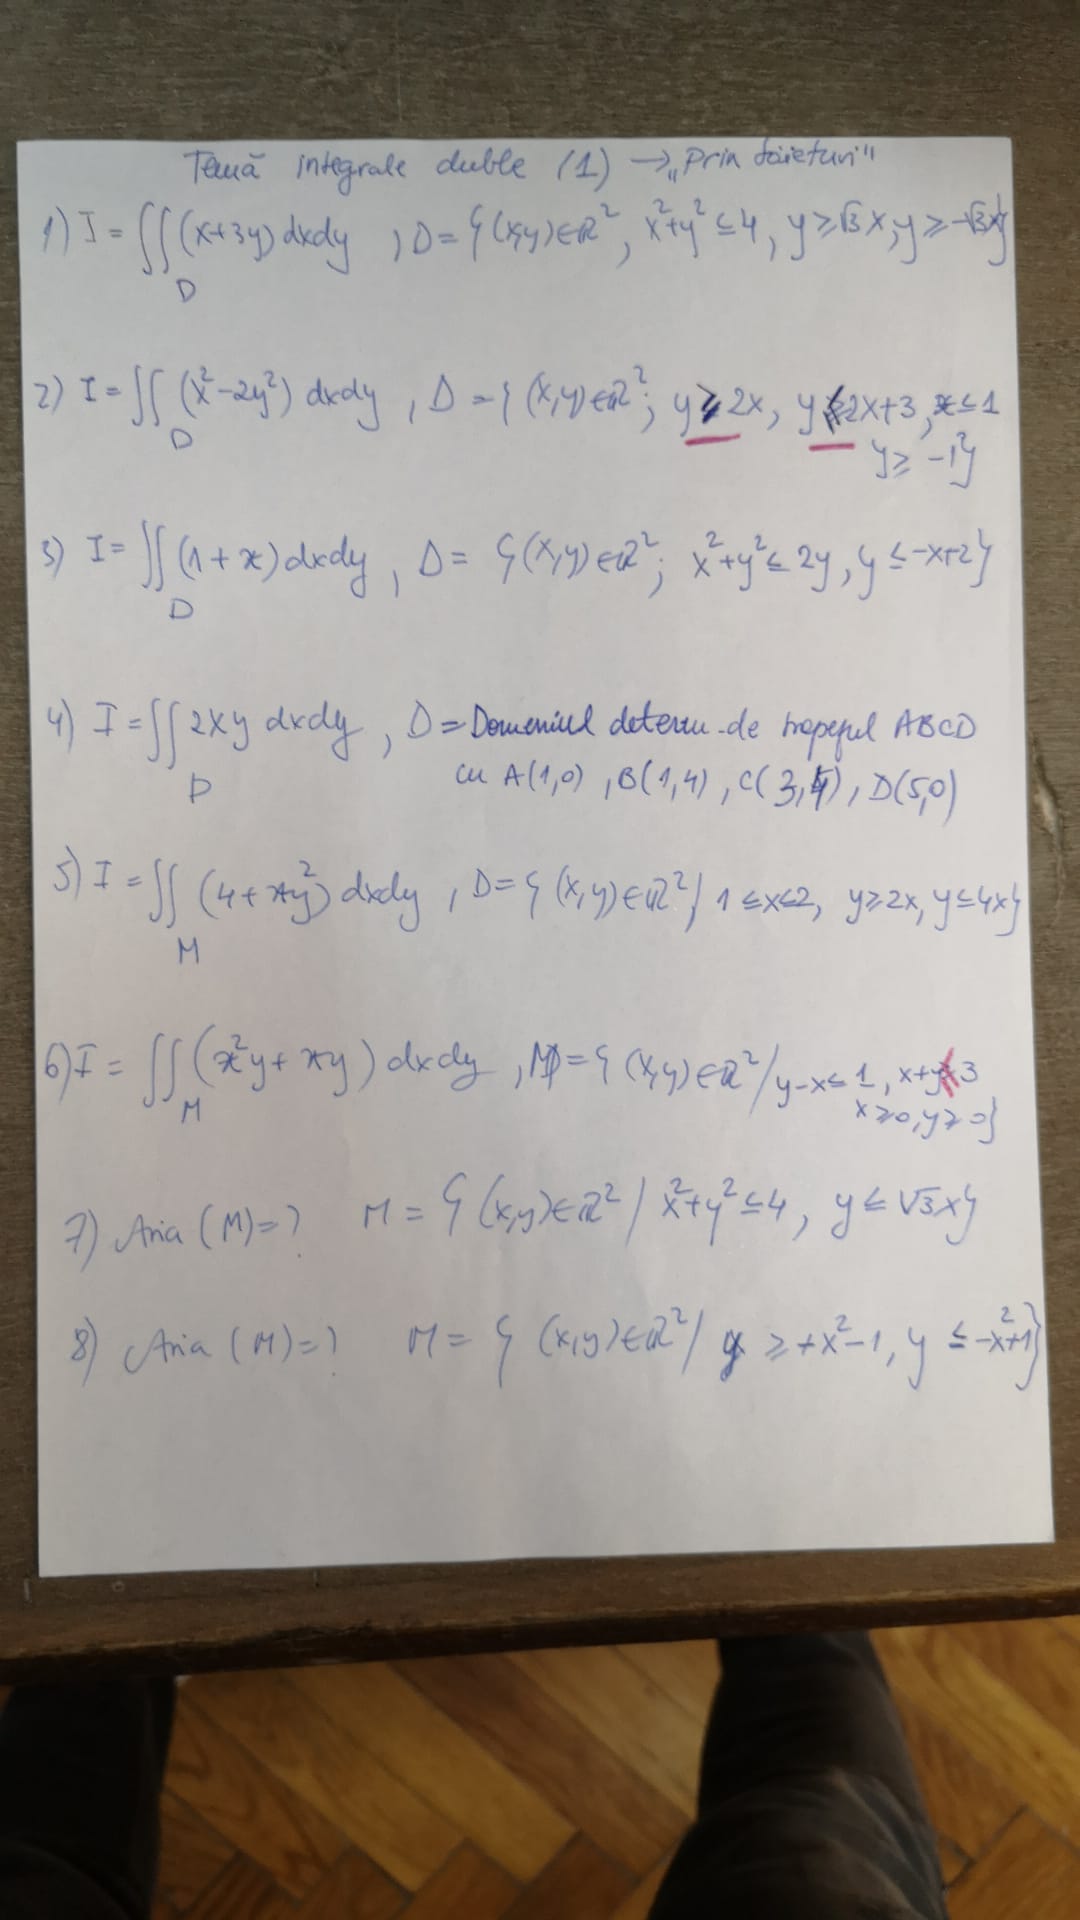 Temă integrale duble (1) → „Prin tăieturi"
1) I = ∬ (x+3y) dxdy , D = {(x,y)∈ℝ², x²+y² ≤ 4, y ≥ √3 x, y ≥ -√3x}
D
2) I = ∬ (x²-2y²) dxdy , D = {(x,y)∈ℝ²; y ≥ 2x, y ≤ 2x+3, x ≤ 1
D
y ≥ -1}
3) I = ∬ (1+x) dxdy , D = {(x,y)∈ℝ²; x²+y² ≤ 2y, y ≤ -x+2}
D
4) I = ∬ 2xy dxdy , D = Domeniul determ. de trapezul ABCD
D
cu A(1,0) , B(1,4) , C(3,4) , D(5,0)
5) I = ∬ (4+xy²) dxdy , D = {(x,y)∈ℝ² / 1 ≤ x ≤ 2, y ≥ 2x, y ≤ 4x}
M
6) I = ∬ (x²y + xy) dxdy , M = {(x,y)∈ℝ² / y-x ≤ 1, x+y ≤ 3
M
x ≥ 0, y ≥ 0}
7) Aria (M) = ? M = {(x,y)∈ℝ² / x²+y² ≤ 4, y ≤ √3x}
8) Aria (M) = ? M = {(x,y)∈ℝ² / y ≥ +x²-1, y ≤ -x²+1}